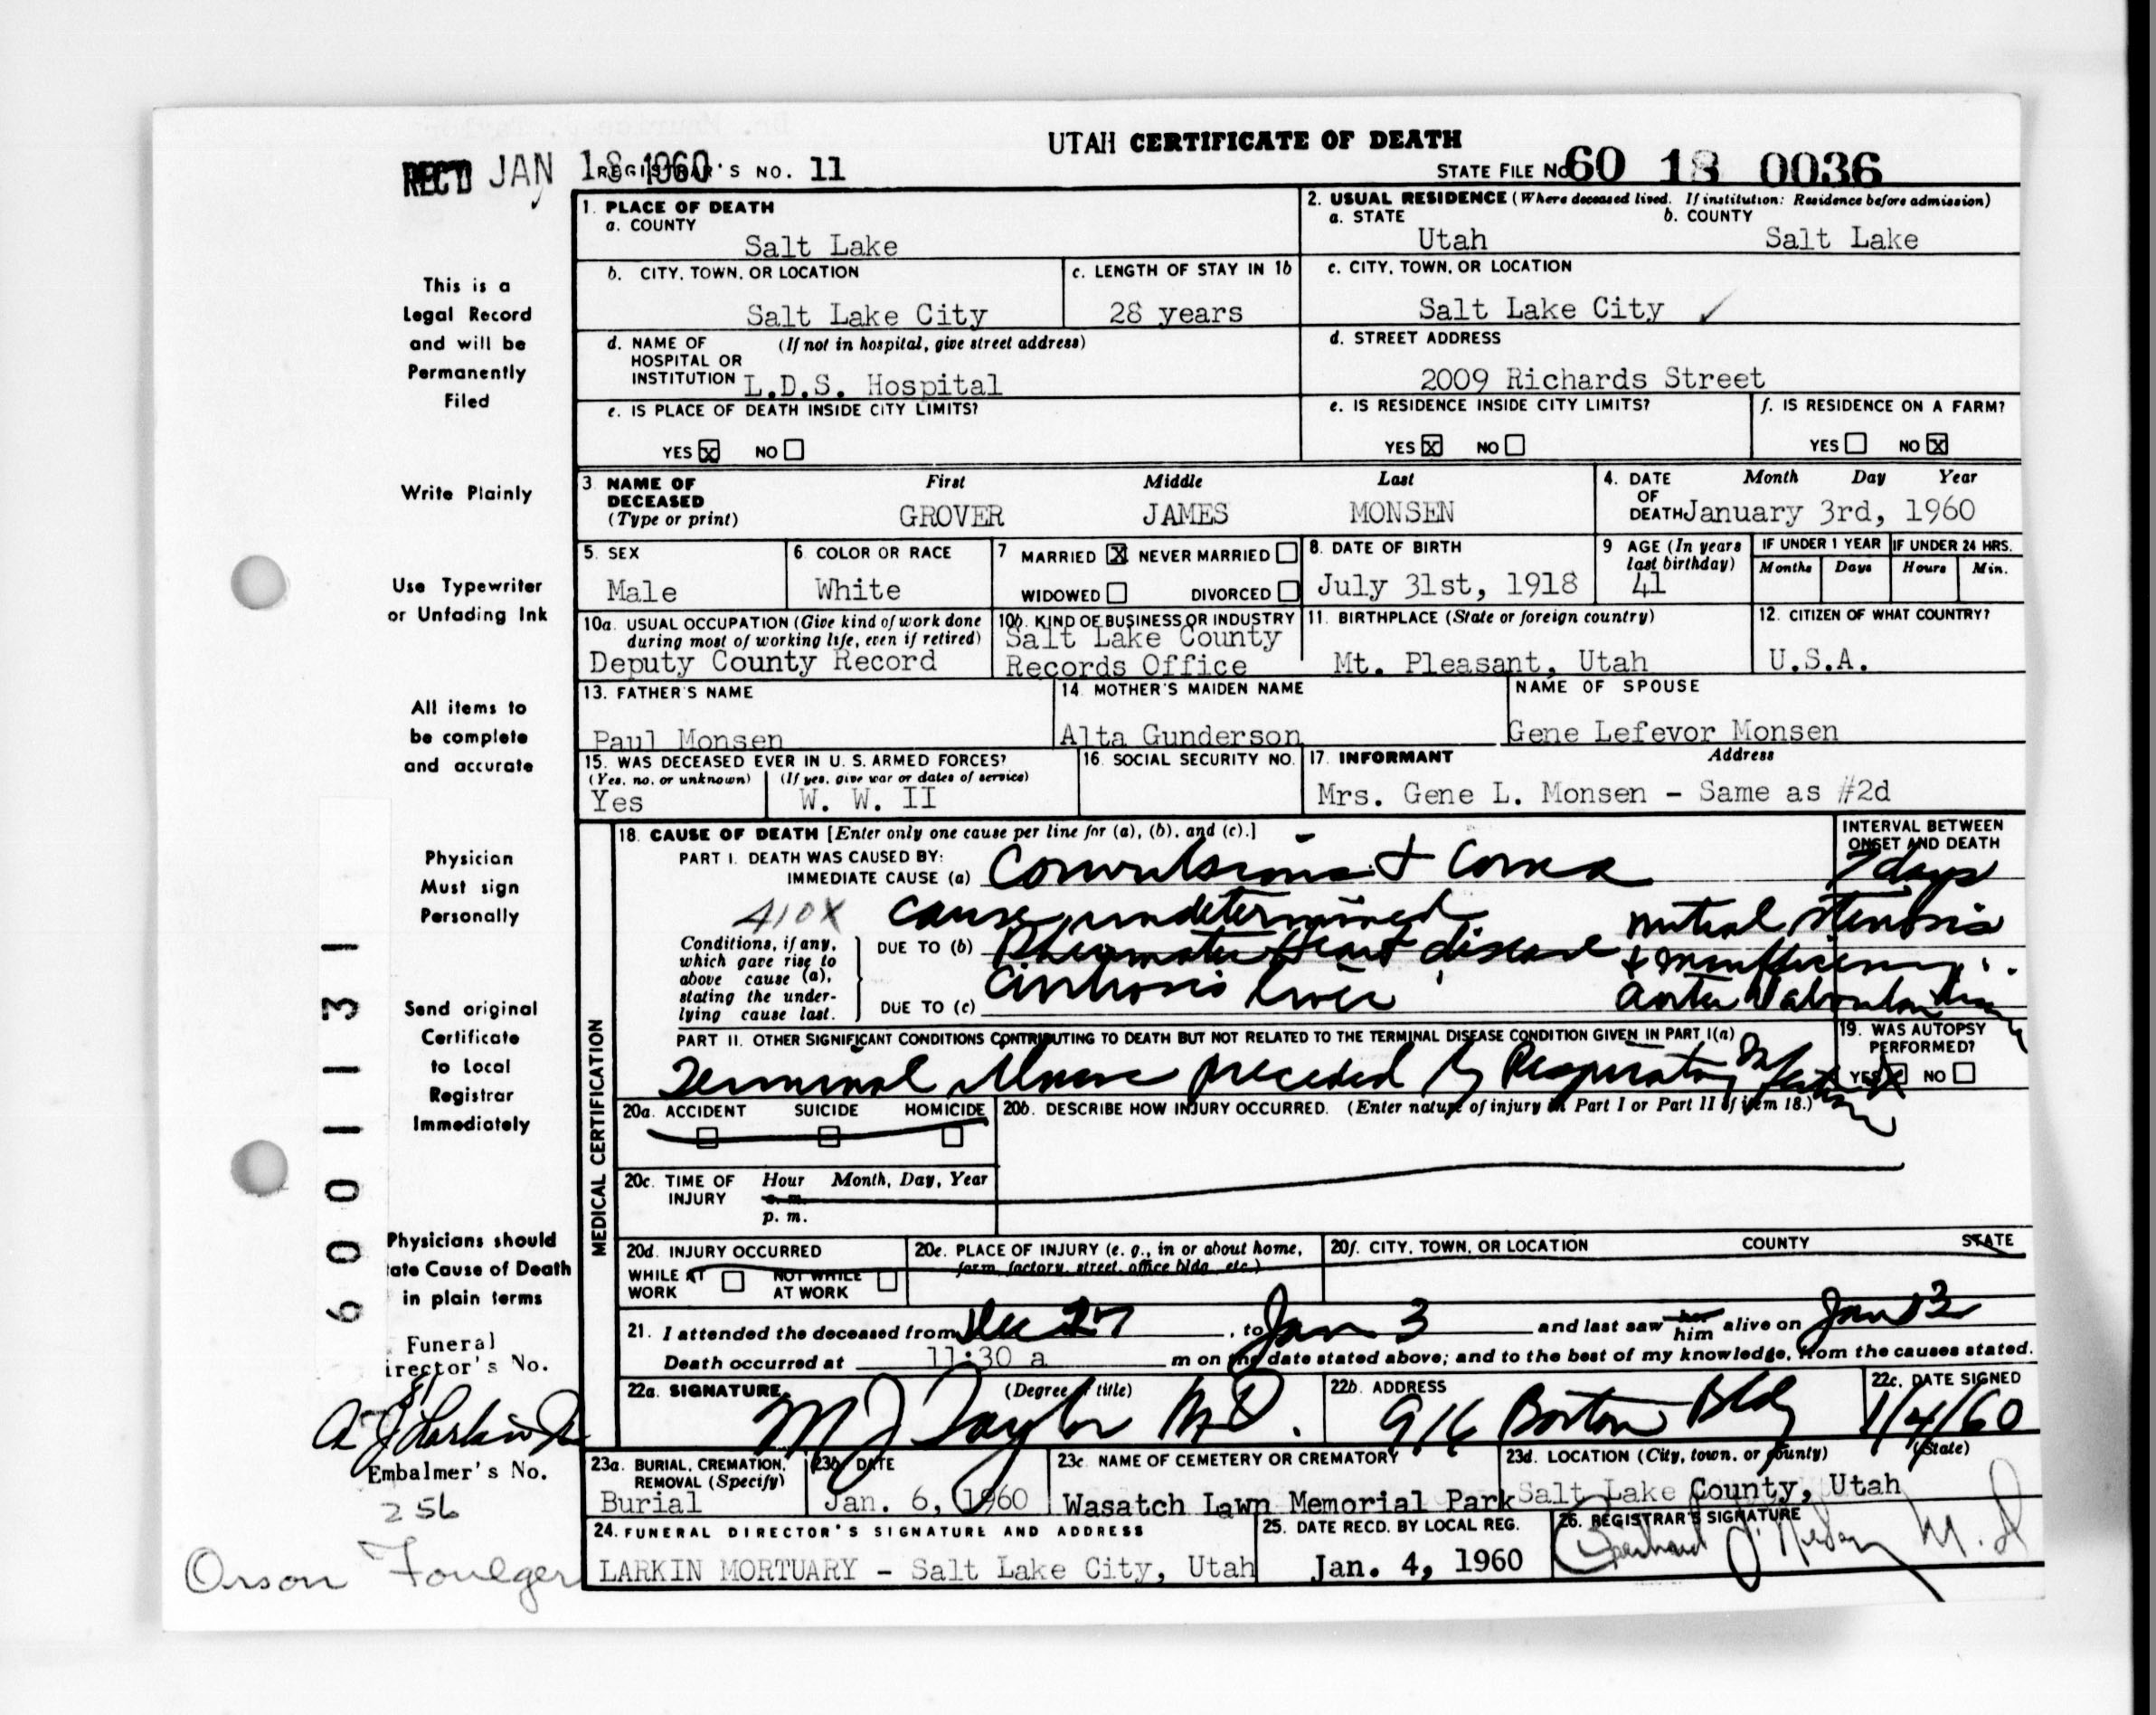 UTAH CERTIFICATE OF DEATH
REC'D JAN 18 1960 REGISTRAR'S NO. 11
STATE FILE NO 60 18 0036
This is a
Legal Record
and will be
Permanently
Filed
Write Plainly
Use Typewriter
or Unfading Ink
All items to
be complete
and accurate
Physician
Must sign
Personally
Send original
Certificate
to Local
Registrar
Immediately
Physicians should
ate Cause of Death
in plain terms
Funeral
irector's No.
Embalmer's No.
256
Orson Foulger
6001131
1. PLACE OF DEATH
a. COUNTY
Salt Lake
2. USUAL RESIDENCE (Where deceased lived. If institution: Residence before admission)
a. STATE b. COUNTY
Utah Salt Lake
b. CITY, TOWN, OR LOCATION
Salt Lake City
c. LENGTH OF STAY IN 1b
28 years
c. CITY, TOWN, OR LOCATION
Salt Lake City ✓
d. NAME OF (If not in hospital, give street address)
HOSPITAL OR
INSTITUTION L.D.S. Hospital
d. STREET ADDRESS
2009 Richards Street
e. IS PLACE OF DEATH INSIDE CITY LIMITS?
YES ☒ NO ☐
e. IS RESIDENCE INSIDE CITY LIMITS?
YES ☒ NO ☐
f. IS RESIDENCE ON A FARM?
YES ☐ NO ☒
3. NAME OF First Middle Last
DECEASED
(Type or print) GROVER JAMES MONSEN
4. DATE Month Day Year
OF
DEATH January 3rd, 1960
5. SEX
Male
6. COLOR OR RACE
White
7 MARRIED ☒ NEVER MARRIED ☐
WIDOWED ☐ DIVORCED ☐
8. DATE OF BIRTH
July 31st, 1918
9 AGE (In years
last birthday)
41
IF UNDER 1 YEAR IF UNDER 24 HRS.
Months Days Hours Min.
10a. USUAL OCCUPATION (Give kind of work done
during most of working life, even if retired)
Deputy County Record
10b. KIND OF BUSINESS OR INDUSTRY
Salt Lake County
Records Office
11. BIRTHPLACE (State or foreign country)
Mt. Pleasant, Utah
12. CITIZEN OF WHAT COUNTRY?
U.S.A.
13. FATHER'S NAME
Paul Monsen
14. MOTHER'S MAIDEN NAME
Alta Gunderson
NAME OF SPOUSE
Gene Lefevor Monsen
15. WAS DECEASED EVER IN U. S. ARMED FORCES?
(Yes, no, or unknown) (If yes, give war or dates of service)
Yes W. W. II
16. SOCIAL SECURITY NO.
17. INFORMANT Address
Mrs. Gene L. Monsen - Same as #2d
MEDICAL CERTIFICATION
18. CAUSE OF DEATH [Enter only one cause per line for (a), (b), and (c).]
INTERVAL BETWEEN
ONSET AND DEATH
PART I. DEATH WAS CAUSED BY:
IMMEDIATE CAUSE (a) Convulsions & Coma 7 days
410X cause undetermined
Conditions, if any,
which gave rise to
above cause (a),
stating the under-
lying cause last.
DUE TO (b) Rheumatic Heart disease mitral stenosis
& insufficiency
DUE TO (c) Cirrhosis liver
PART II. OTHER SIGNIFICANT CONDITIONS CONTRIBUTING TO DEATH BUT NOT RELATED TO THE TERMINAL DISEASE CONDITION GIVEN IN PART I(a)
Terminal illness preceded by Respiratory Infection
19. WAS AUTOPSY
PERFORMED?
YES ☒ NO ☐
20a. ACCIDENT SUICIDE HOMICIDE
20b. DESCRIBE HOW INJURY OCCURRED. (Enter nature of injury in Part I or Part II of item 18.)
20c. TIME OF Hour Month, Day, Year
INJURY a. m.
p. m.
20d. INJURY OCCURRED
WHILE AT WORK ☐ NOT WHILE AT WORK ☐
20e. PLACE OF INJURY (e. g., in or about home,
farm, factory, street, office bldg., etc.)
20f. CITY, TOWN, OR LOCATION COUNTY STATE
21. I attended the deceased from Dec 27, to Jan 3 and last saw her him alive on Jan 3
Death occurred at 11:30 a m on the date stated above; and to the best of my knowledge, from the causes stated.
22a. SIGNATURE (Degree or title)
M J Taylor M.D.
22b. ADDRESS
916 Boston Bldg
22c. DATE SIGNED
1/4/60
23a. BURIAL, CREMATION,
REMOVAL (Specify)
Burial
23b. DATE
Jan. 6, 1960
23c. NAME OF CEMETERY OR CREMATORY
Wasatch Lawn Memorial Park
23d. LOCATION (City, town, or county) (State)
Salt Lake County, Utah
24. FUNERAL DIRECTOR'S SIGNATURE AND ADDRESS
LARKIN MORTUARY - Salt Lake City, Utah
25. DATE RECD. BY LOCAL REG.
Jan. 4, 1960
26. REGISTRAR'S SIGNATURE